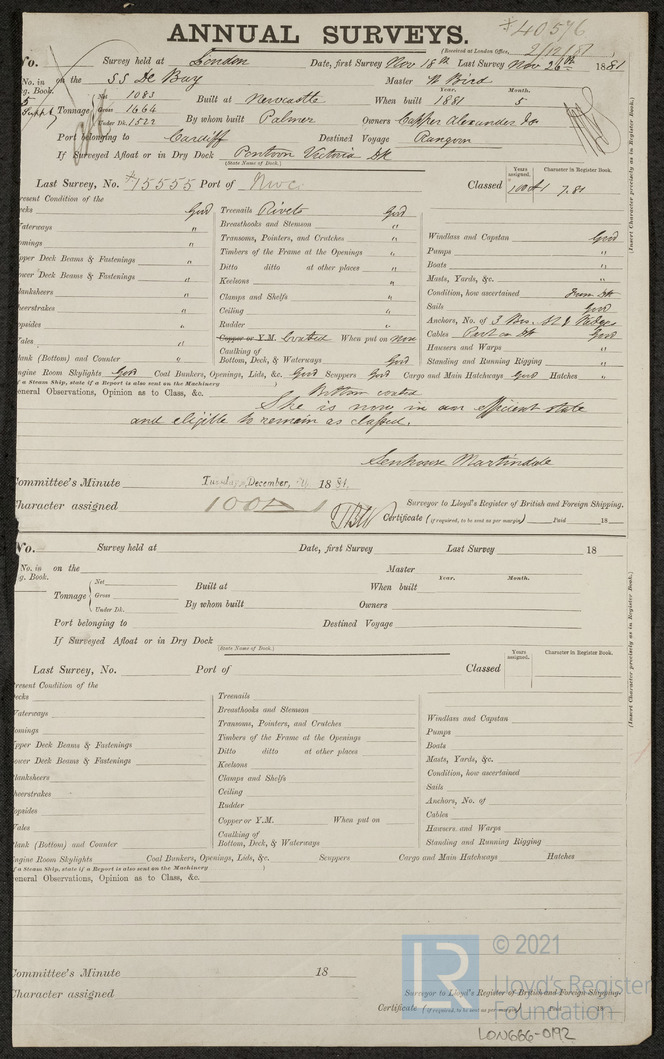 ANNUAL SURVEYS.
*40576
(Received at London Office, 2/12/81
No. Survey held at London Date, first Survey Nov 18th Last Survey Nov 26th 1881
No. in on the SS De Bay Master W Bird
g. Book. Net 1083 Year. Month.
Tonnage Gross 1664 Built at Newcastle When built 1881 5
Under Dk. 1522 By whom built Palmer Owners Capper Alexander & Co
Port belonging to Cardiff Destined Voyage Rangoon
If Surveyed Afloat or in Dry Dock Pontoon Victoria Dk
(State Name of Dock.)
Last Survey, No. *15555 Port of Nwc. Classed
Years assigned. Character in Register Book.
100A1 7.81
(Insert Character precisely as in Register Book.)
resent Condition of the
ecks Good Treenails Rivets Good
Waterways " Breasthooks and Stemson "
omings " Transoms, Pointers, and Crutches " Windlass and Capstan Good
pper Deck Beams & Fastenings " Timbers of the Frame at the Openings " Pumps "
ower Deck Beams & Fastenings " Ditto ditto at other places " Boats "
Keelsons " Masts, Yards, &c. "
lanksheers " Clamps and Shelfs " Condition, how ascertained From Dk
heerstrakes " Ceiling " Sails Good
opsides " Rudder " Anchors, No. of 3 Brs.
Wales " Copper or Y.M. Coated When put on Now Cables Part on Dk Good
Caulking of Hawsers and Warps "
lank (Bottom) and Counter " Bottom, Deck, & Waterways Good Standing and Running Rigging "
ngine Room Skylights Good Coal Bunkers, Openings, Lids, &c. Good Scuppers Good Cargo and Main Hatchways Good Hatches "
f a Steam Ship, state if a Report is also sent on the Machinery )
eneral Observations, Opinion as to Class, &c. Bottom coated
She is now in an efficient state
and eligible to remain as classed.
Senhouse Martindale
ommittee's Minute Tuesday, December, 1881
Character assigned 100A1
Surveyor to Lloyd's Register of British and Foreign Shipping.
Certificate (if required, to be sent as per margin) Paid 18
No. Survey held at Date, first Survey Last Survey 18
No. in on the Master
g. Book. Net Year. Month.
Tonnage Gross Built at When built
Under Dk. By whom built Owners
Port belonging to Destined Voyage
If Surveyed Afloat or in Dry Dock
(State Name of Dock.)
Last Survey, No. Port of Classed
Years assigned. Character in Register Book.
(Insert Character precisely as in Register Book.)
resent Condition of the
ecks Treenails
Waterways Breasthooks and Stemson
omings Transoms, Pointers, and Crutches Windlass and Capstan
pper Deck Beams & Fastenings Timbers of the Frame at the Openings Pumps
ower Deck Beams & Fastenings Ditto ditto at other places Boats
Keelsons Masts, Yards, &c.
lanksheers Clamps and Shelfs Condition, how ascertained
heerstrakes Ceiling Sails
opsides Rudder Anchors, No. of
Wales Copper or Y.M. When put on Cables
Caulking of Hawsers and Warps
lank (Bottom) and Counter Bottom, Deck, & Waterways Standing and Running Rigging
ngine Room Skylights Coal Bunkers, Openings, Lids, &c. Scuppers Cargo and Main Hatchways Hatches
f a Steam Ship, state if a Report is also sent on the Machinery )
eneral Observations, Opinion as to Class, &c.
ommittee's Minute 18
Character assigned
Surveyor to Lloyd's Register of British and Foreign Shipping.
Certificate (if required, to be sent as per margin) Paid 18
LR © 2021
Lloyd's Register
Foundation
LON666-0192